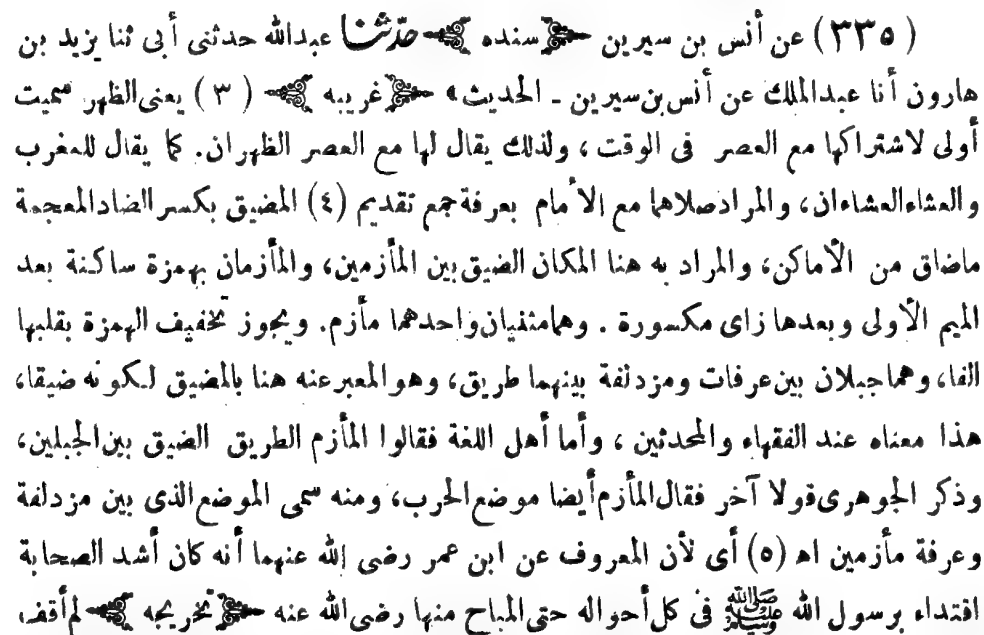 (٣٣٥) عن أنس بن سيرين ﴿سنده﴾ حدّثنا عبدالله حدثنى أبى ثنا يزيد بن
هارون أنا عبدالملك عن أنس بن سيرين ـ الحديث» ﴿غريبه﴾ (٣) يعنى الظهر سميت
أولى لاشتراكها مع العصر فى الوقت، ولذلك يقال لها مع العصر الظهران. كما يقال للمغرب
والعشاء العشاءان، والمراد صلاهما مع الأمام بعرفة جمع تقديم (٤) المضيق بكسر الضاد المعجمة
ماضاق من الأماكن، والمراد به هنا المكان الضيق بين المأزمين، والمأزمان بهمزة ساكنة بعد
الميم الأولى وبعدها زاى مكسورة. وهما مثنيان واحدهما مأزم. ويجوز تخفيف الهمزة بقلبها
الفا، وهما جبلان بين عرفات ومزدلفة بينهما طريق، وهو المعبر عنه هنا بالمضيق لكونه ضيقا،
هذا معناه عند الفقهاء والمحدثين، وأما أهل اللغة فقالوا المأزم الطريق الضيق بين الجبلين،
وذكر الجوهرى قولا آخر فقال المأزم أيضا موضع الحرب، ومنه سمى الموضع الذى بين مزدلفة
وعرفة مأزمين اه (٥) أى لأن المعروف عن ابن عمر رضى الله عنهما أنه كان أشد الصحابة
اقتداء برسول الله ﷺ فى كل أحواله حتى المباح منها رضى الله عنه ﴿تخريجه﴾ لم أقف،